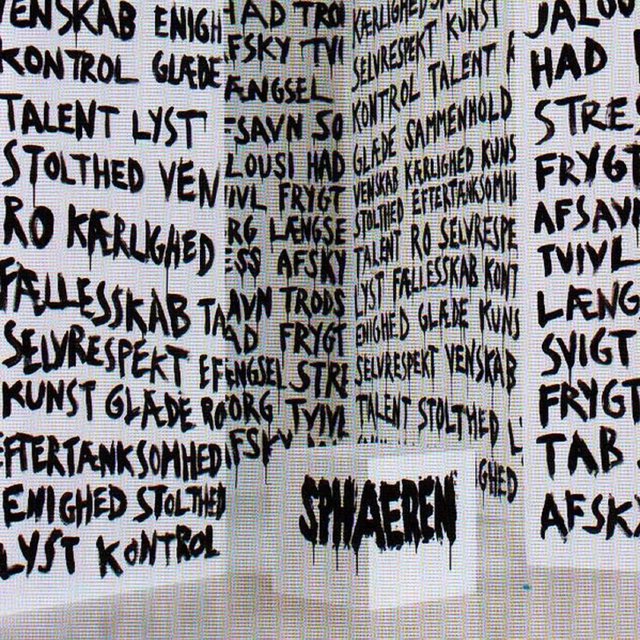 ENSKAB ENIGH
KONTROL GLÆDE
TALENT LYST
STOLTHED VEN
RO KÆRLIGHED
FÆLLESSKAB TA
SELVRESPEKT EF
KUNST GLÆDE RO
EFTERTÆNKSOMHED
ENIGHED STOLTHED
LYST KONTROL
HAD TRO
FSKY TVI
ÆNGSEL
SAVN SO
LOUSI HAD
IVL FRYGT
RG LÆNGSE
ESS AFSKY
AVN TRODS
AD FRYGT
ENGSEL STRE
ORG TVIVL
FSKY
KÆRLIGHED
SELVRESPEKT KUNST
KONTROL TALENT
GLÆDE SAMMENHOLD
VENSKAB KÆRLIGHED KUNS
STOLTHED EFTERTÆNKSOMH
TALENT RO SELVRESPE
LYST FÆLLESSKAB KONT
ENIGHED GLÆDE KUNS
SELVRESPEKT VENSKAB
TALENT STOLTHED L
IGHED
SPHAEREN
JALOU
HAD
STRE
FRYGT
AFSAV
TVIVL
LÆNG
SVIGT
FRYGT
TAB
AFSK